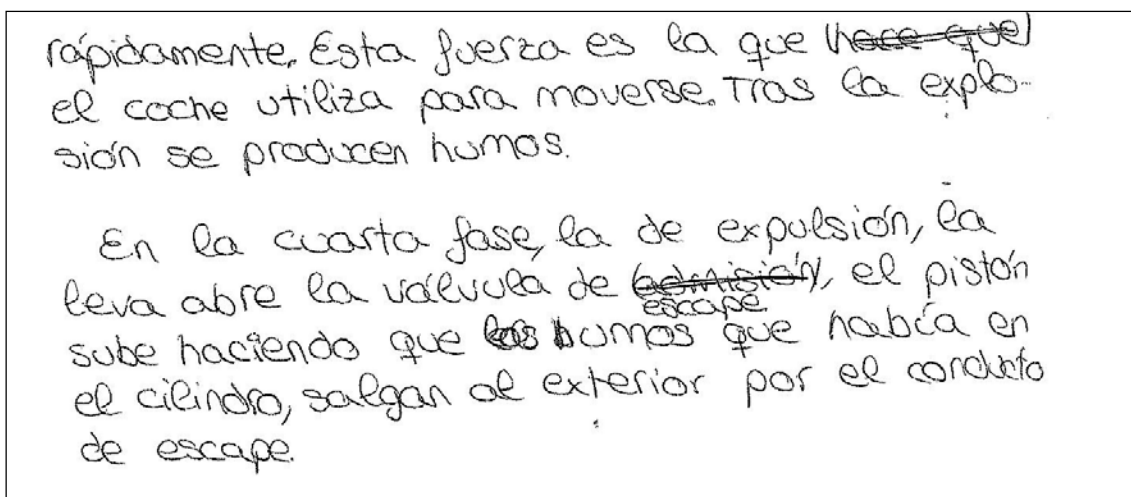 rápidamente. Esta fuerza es la que hace que
el coche utiliza para moverse. Tras la explo-
sión se producen humos.
En la cuarta fase, la de expulsión, la
leva abre la válvula de (admisión), el pistón
escape
sube haciendo que los humos que había en
el cilindro, salgan al exterior por el conducto
de escape.